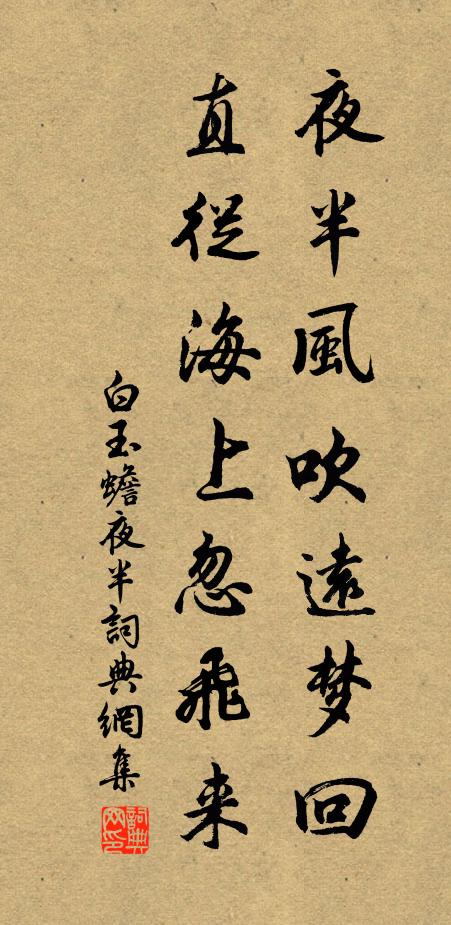 夜半風吹遠梦回
直從海上忽飛来
白玉蟾夜半詞典網集
詞典網印